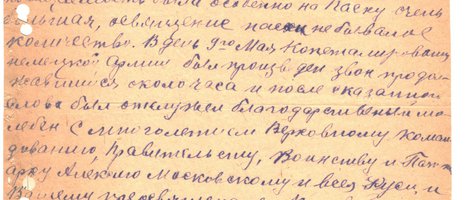 была особенно на Пасху очень
большая, освящение пасхи небывалое
количество. В день 9го Мая Копетилировки
немецкой Армии был произведен звон продол
жавшийся около часа и после сказанного
слова был отслужен благодарственный мо
лебен с многолетием Верховному коман
дованию, Правительству, Воинству и Патри
арху Алексию Московскому и всея Руси, и
Вашему преосвященс